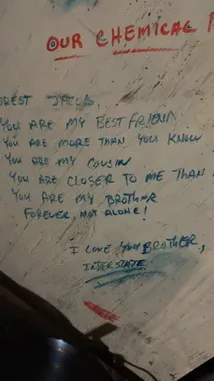 OUR CHEMICAL
JACOB
YOU ARE MY BEST FRIEND
YOU ARE MORE THAN YOU KNOW
YOU ARE MY COUSIN
YOU ARE CLOSER TO ME THAN
YOU ARE MY BROTHER
FOREVER, NOT ALONE!
I LOVE YOU BROTHER,
INTERSTATE